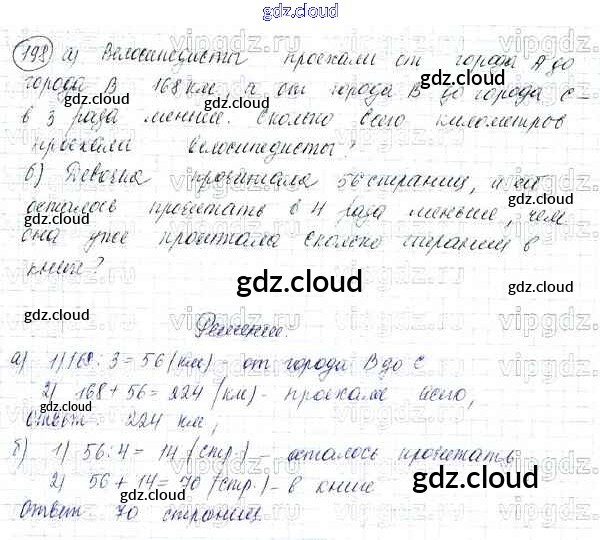 gdz.cloud
198 а) Велосипедисты проехали от города А до
города В 168 км, а от города В до города С –
в 3 раза меньше. Сколько всего километров
проехали велосипедисты?
б) Девочка прочитала 56 страниц, и ей
осталось прочитать в 4 раза меньше, чем
она уже прочитала Сколько страниц в
книге?
gdz.cloud
Решение.
а) 1) 168 : 3 = 56 (км) – от города В до С
2) 168 + 56 = 224 (км) – проехали всего,
Ответ: 224 км,
б) 1) 56 : 4 = 14 (стр.) – осталось прочитать
2) 56 + 14 = 70 (стр.) – в книге
Ответ 70 страниц.